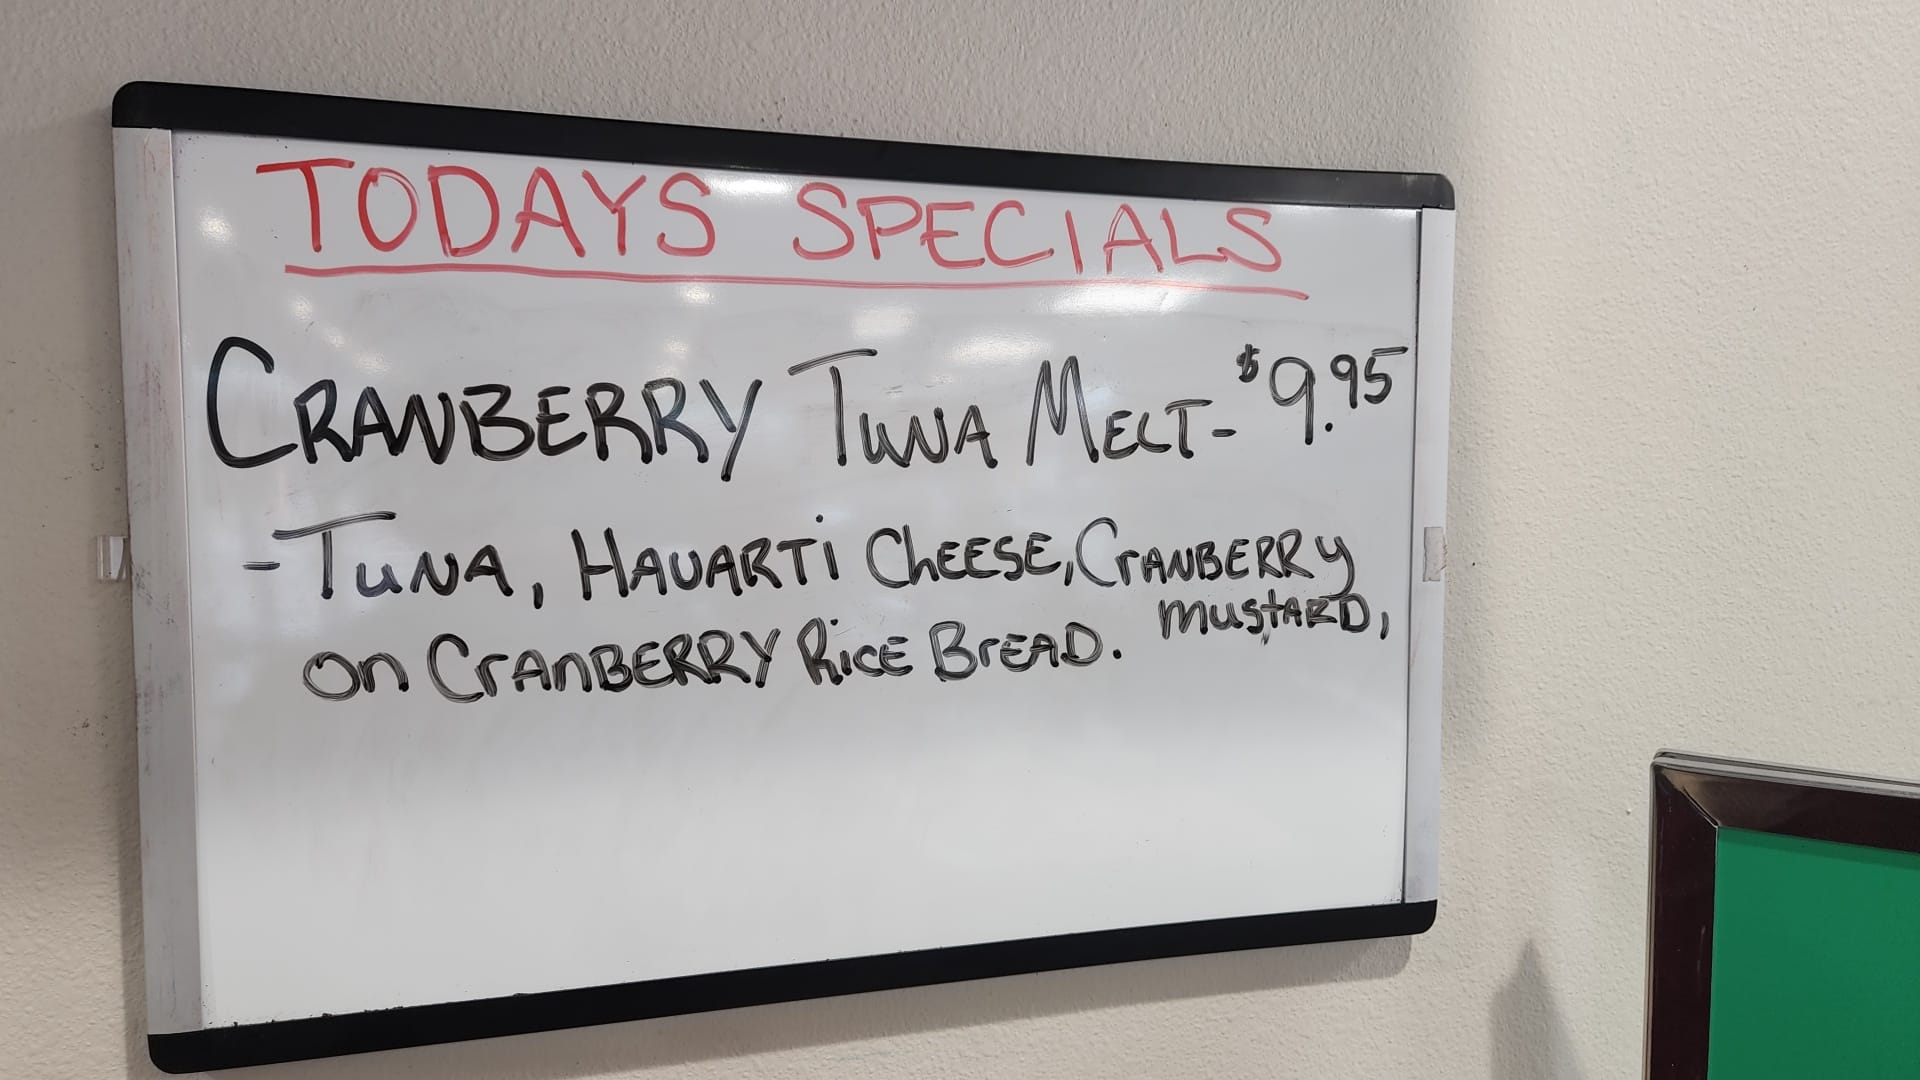 TODAYS SPECIALS
CRANBERRY TUNA MELT- $9.95
-TUNA, HAVARTi ChEESE, CrANBERRy
mustARD,
on CrAnBERRY RicE BrEAD.